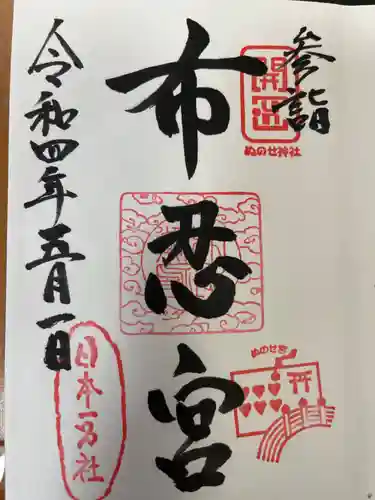 参詣
開運
ぬのせ神社
布忍宮
ぬのせ宮
令和四年五月一日
日本一宮社